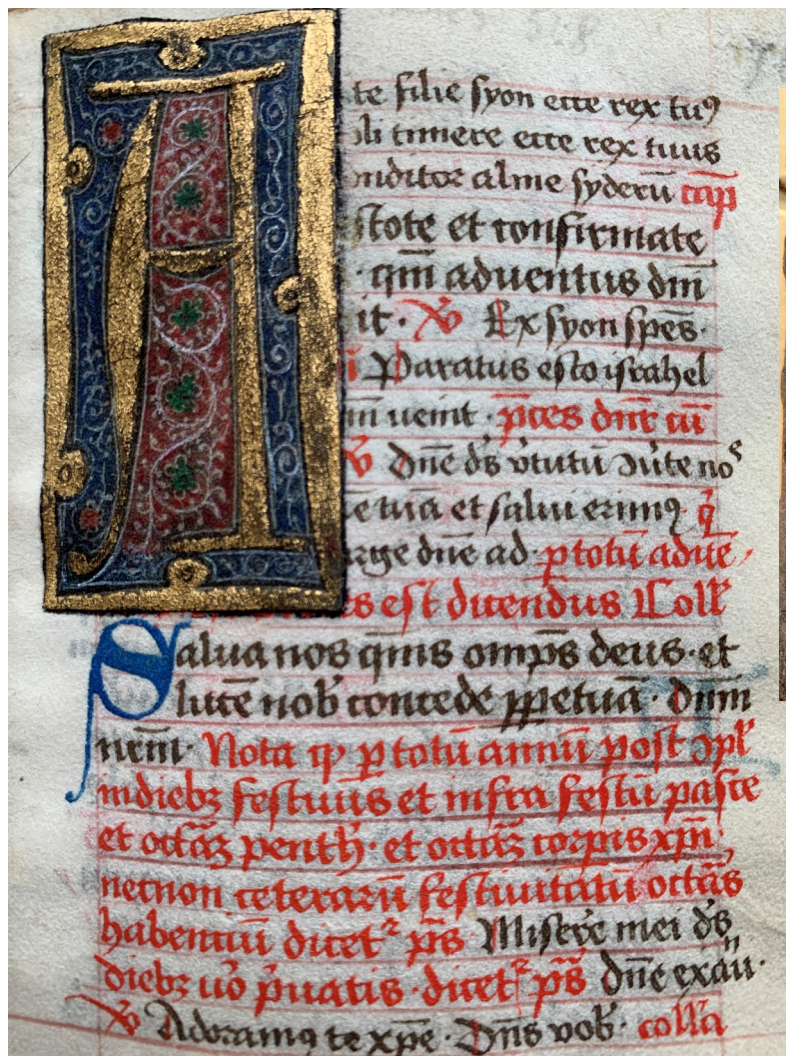 te filie syon ecce rex tuꝰ
oli timere ecce rex tuus
onditor alme syderū cap̄
stote et confirmate
qm̄ aduentus dm̄
it · ℣ Ex syon sp̄es ·
Paratus esto israhel
m̄ ueint · p̄ces dn̄r cū
℣ Dn̄e ds̄ v̓tutū ↄu̓te noˢ
ē tuā et salui erimꝰ
rge dn̄e ad · ꝑ totū aduē
s est dicendus Coll̄
Salua nos qm̄s omp̄s deus · et
lucē nob̓ concede ꝑpetuā · Dum̄
nrm̄ · Nota ꝙ ꝑ totū annū post ↄpl̄
in diebꝫ festiuis et infra festū pasce
et octāꝫ penth̓ · et octāꝫ corpis xp̄i
necnon ceterarū festiuitatū octās
habentiū dicetᷣ p̄s Misere mei ds̄
diebꝫ uo̓ p̓uatis · dicetᷣ p̄s dn̄e exau ·
℣ Adoramꝰ te xp̄e · Dn̄s vob̓ · coll̄a